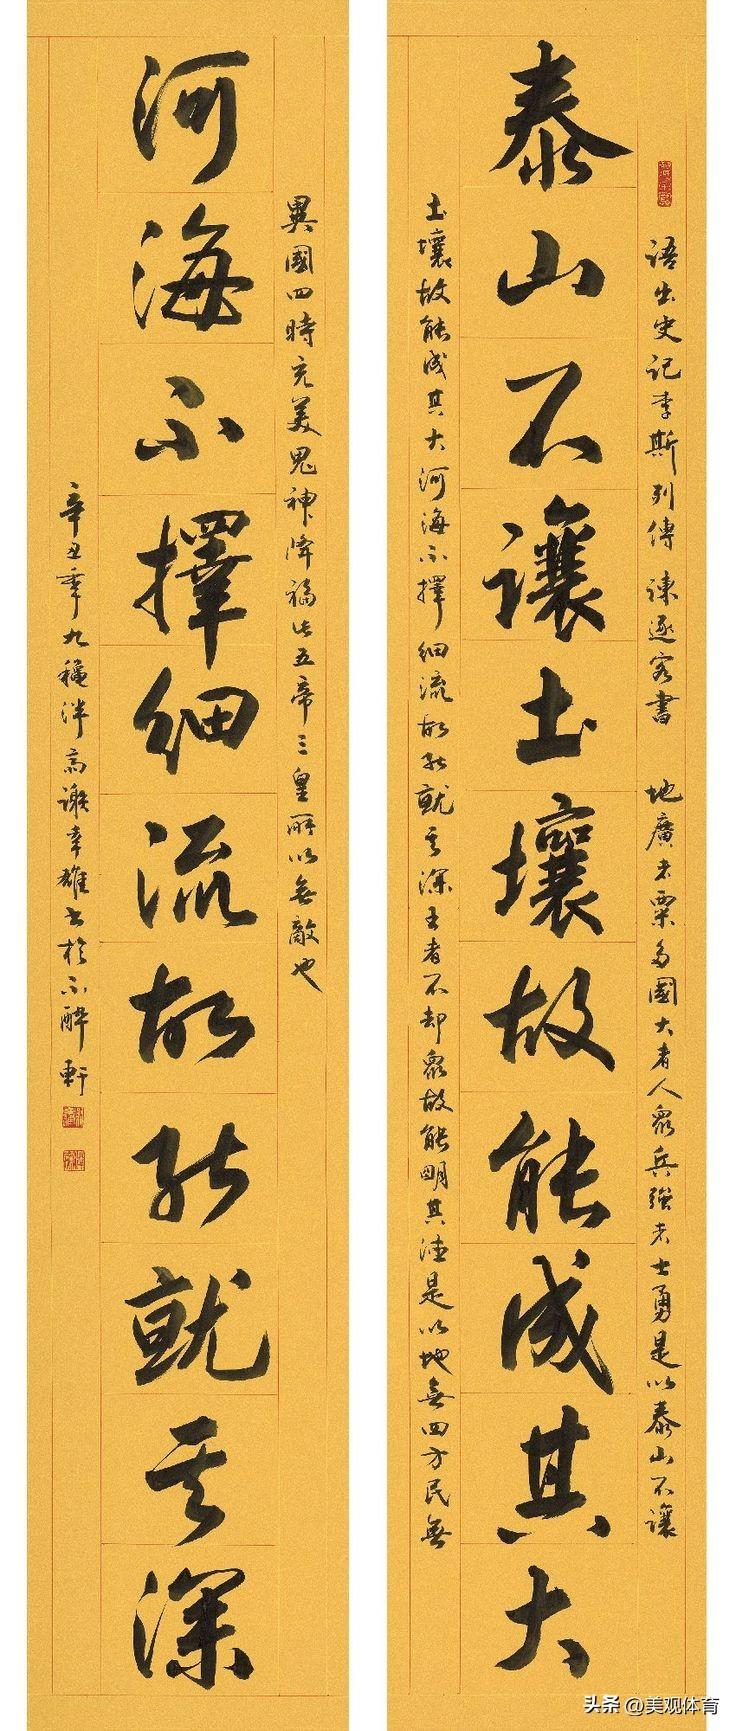 語出史記李斯列傳諫逐客書 地廣者粟多國大者人眾兵強者士勇是以泰山不讓
泰山不讓土壤故能成其大
土壤故能成其大河海不擇細流故能就其深王者不却眾故能明其德是以地無四方民無
異國四時充美鬼神降福此五帝三皇所以無敵也
河海不擇細流故能就其深
辛丑年九龝謝幸雄書於不醉軒
头条 @美观体育